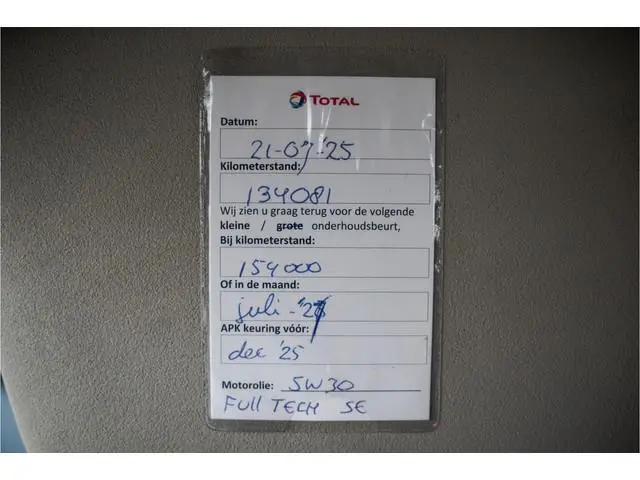 TOTAL
Datum:
21-07-'25
Kilometerstand:
134081
Wij zien u graag terug voor de volgende
kleine / grote onderhoudsbeurt,
Bij kilometerstand:
154000
Of in de maand:
juli -'27
APK keuring vóór:
dec '25
Motorolie: 5W30
FULL TECH SE